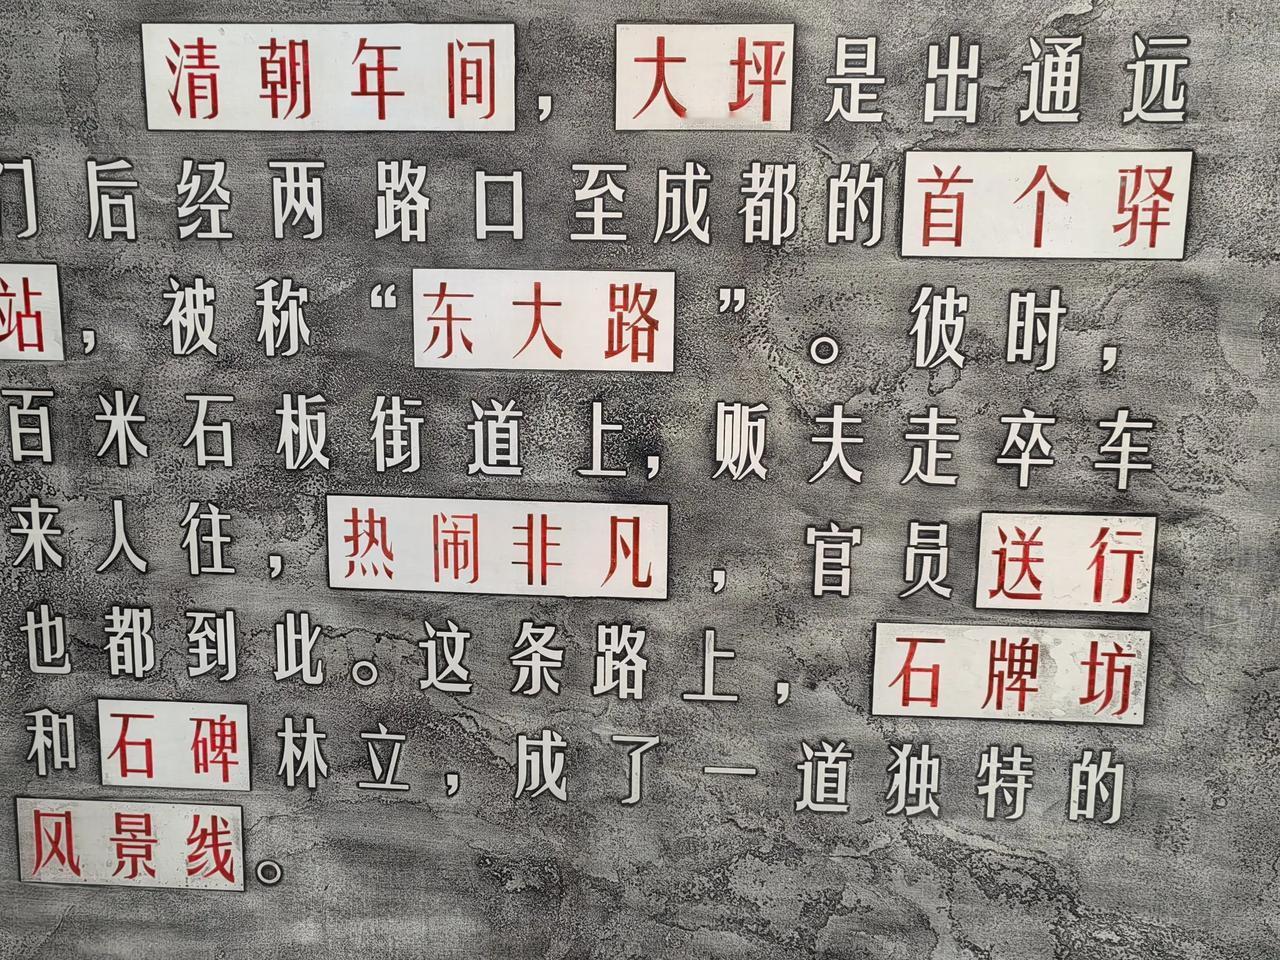 清朝年间，大坪是出通远
门后经两路口至成都的首个驿
站，被称“东大路”。彼时，
百米石板街道上，贩夫走卒车
来人往，热闹非凡，官员送行
也都到此。这条路上，石牌坊
和石碑林立，成了一道独特的
风景线。